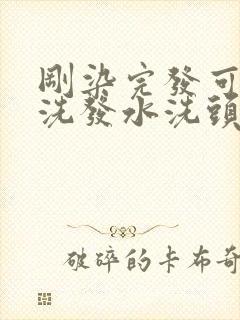 剛染完發可
洗發水洗頭
破碎的卡布奇